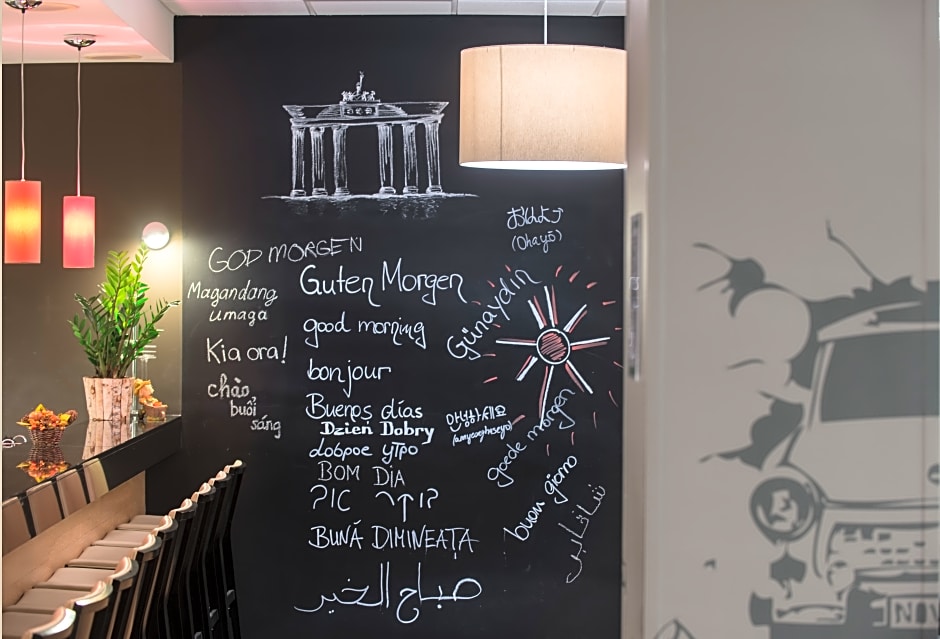 GOD MORGEN
Magandang
umaga
Kia ora!
chào
buổi
sáng
Guten Morgen
good morning
bonjour
Buenos días
Dzień Dobry
доброе утро
BOM DIA
BUNĂ DIMINEAȚA
صباح الخير
おはよう
(Ohayō)
Günaydın
안녕하세요
(annyeonghaseyo)
goede morgen
buon giorno
NOV